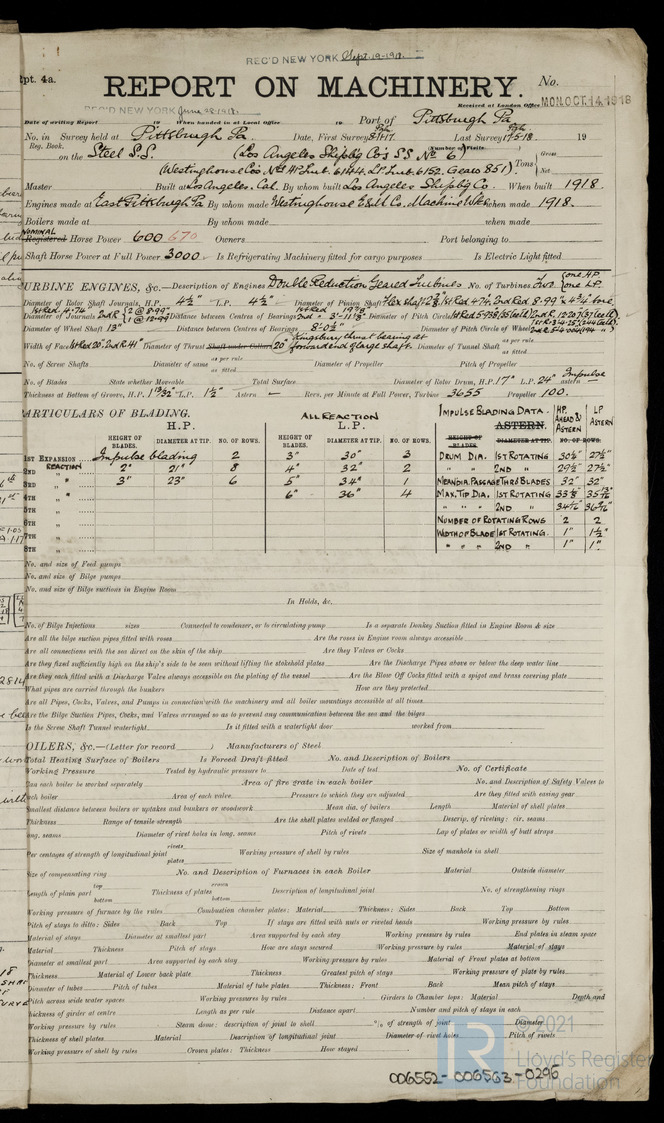 REC'D NEW YORK Sept. 19-1918
Rpt. 4a.
REPORT ON MACHINERY. No.
REC'D NEW YORK June 28 1918
Received at London Office MON. OCT. 14 1918
Date of writing Report 19 When handed in at Local Office 19 Port of Pittsburgh Pa
No. in Survey held at Pittsburgh Pa. Date, First Survey Last Survey 17-5-18 19
Reg. Book. (Number of Visits)
on the Steel S.S. (Los Angeles Shipbg Co's S.S. No 6)
(Westinghouse Co's. Nos HP Turb. 6144. LP Turb. 6152. Gears 851) Tons Gross Net
Master Built at Los Angeles. Cal. By whom built Los Angeles Shipbg Co. When built 1918.
Engines made at East Pittsburgh Pa By whom made Westinghouse E&M Co. Machine Wks when made 1918.
Boilers made at By whom made when made
NOMINAL
Registered Horse Power 600 670 Owners Port belonging to
Shaft Horse Power at Full Power 3000 Is Refrigerating Machinery fitted for cargo purposes Is Electric Light fitted
TURBINE ENGINES, &c.—Description of Engines Double Reduction Geared Turbines No. of Turbines Two {one H.P. one L.P.
Diameter of Rotor Shaft Journals, H.P. 4½" L.P. 4½" Diameter of Pinion Shaft
Diameter of Journals Distance between Centres of Bearings Diameter of Pitch Circle
Diameter of Wheel Shaft 13" Distance between Centres of Bearings 8'-0½" Diameter of Pitch Circle of Wheel
Width of Face 1st Red 20" 2nd Red 41" Diameter of Thrust Shaft under Collars 20" Kingsbury thrust bearing at forward end of large shaft. Diameter of Tunnel Shaft as per rule as fitted
No. of Screw Shafts Diameter of same as per rule as fitted Diameter of Propeller Pitch of Propeller
No. of Blades State whether Moveable Total Surface Diameter of Rotor Drum, H.P. 17" L.P. 24" Astern Impulse
Thickness at Bottom of Groove, H.P. 1 13/32" L.P. 1½" Astern — Revs. per Minute at Full Power, Turbine 3655 Propeller 100.
PARTICULARS OF BLADING.
H.P. ALL REACTION L.P. IMPULSE BLADING DATA. ASTERN. HP. AHEAD & ASTERN LP ASTERN
HEIGHT OF BLADES. DIAMETER AT TIP. NO. OF ROWS. HEIGHT OF BLADES. DIAMETER AT TIP. NO. OF ROWS. HEIGHT OF BLADES. DIAMETER AT TIP. NO. OF ROWS.
1ST EXPANSION Impulse blading 2 3" 30" 3 DRUM DIA. 1ST ROTATING 30½" 27½"
2ND REACTION 2" 21" 8 4" 32" 2 " " 2ND " 29½" 27½"
3RD " 3" 23" 6 5" 34" 1 MEAN DIA. PASSAGE THRO BLADES 32" 32"
4TH " 6" 36" 4 MAX. TIP DIA. 1ST ROTATING
5TH " " " " 2ND "
6TH " NUMBER OF ROTATING ROWS 2 2
7TH " WIDTH OF BLADE 1ST ROTATING. 1" 1½"
8TH " " " " 2ND " 1" 1"
No. and size of Feed pumps
No. and size of Bilge pumps
No. and size of Bilge suctions in Engine Room
In Holds, &c.
No. of Bilge Injections sizes Connected to condenser, or to circulating pump Is a separate Donkey Suction fitted in Engine Room & size
Are all the bilge suction pipes fitted with roses Are the roses in Engine room always accessible
Are all connections with the sea direct on the skin of the ship Are they Valves or Cocks
Are they fixed sufficiently high on the ship's side to be seen without lifting the stokehold plates Are the Discharge Pipes above or below the deep water line
Are they each fitted with a Discharge Valve always accessible on the plating of the vessel Are the Blow Off Cocks fitted with a spigot and brass covering plate
What pipes are carried through the bunkers How are they protected
Are all Pipes, Cocks, Valves, and Pumps in connection with the machinery and all boiler mountings accessible at all times
Are the Bilge Suction Pipes, Cocks, and Valves arranged so as to prevent any communication between the sea and the bilges
Is the Screw Shaft Tunnel watertight Is it fitted with a watertight door worked from
BOILERS, &c.—(Letter for record ) Manufacturers of Steel
Total Heating Surface of Boilers Is Forced Draft fitted No. and Description of Boilers
Working Pressure Tested by hydraulic pressure to Date of test No. of Certificate
Can each boiler be worked separately Area of fire grate in each boiler No. and Description of Safety Valves to
each boiler Area of each valve Pressure to which they are adjusted Are they fitted with easing gear
Smallest distance between boilers or uptakes and bunkers or woodwork Mean dia. of boilers Length Material of shell plates
Thickness Range of tensile strength Are the shell plates welded or flanged Descrip. of riveting: cir. seams
long. seams Diameter of rivet holes in long. seams Pitch of rivets Lap of plates or width of butt straps
Per centages of strength of longitudinal joint rivets plates Working pressure of shell by rules Size of manhole in shell
Size of compensating ring No. and Description of Furnaces in each Boiler Material Outside diameter
Length of plain part top bottom Thickness of plates crown bottom Description of longitudinal joint No. of strengthening rings
Working pressure of furnace by the rules Combustion chamber plates: Material Thickness: Sides Back Top Bottom
Pitch of stays to ditto: Sides Back Top If stays are fitted with nuts or riveted heads Working pressure by rules
Material of stays Diameter at smallest part Area supported by each stay Working pressure by rules End plates in steam space
Material Thickness Pitch of stays How are stays secured Working pressure by rules Material of stays
Diameter at smallest part Area supported by each stay Working pressure by rules Material of Front plates at bottom
Thickness Material of Lower back plate Thickness Greatest pitch of stays Working pressure of plate by rules
Diameter of tubes Pitch of tubes Material of tube plates Thickness: Front Back Mean pitch of stays
Pitch across wide water spaces Working pressures by rules Girders to Chamber tops: Material Depth and
thickness of girder at centre Length as per rule Distance apart Number and pitch of stays in each
Working pressure by rules Steam dome: description of joint to shell % of strength of joint Diameter
Thickness of shell plates Material Description of longitudinal joint Diameter of rivet holes Pitch of rivets
Working pressure of shell by rules Crown plates: Thickness How stayed
© 2021
Lloyd's Register
Foundation
006552-006563-0296